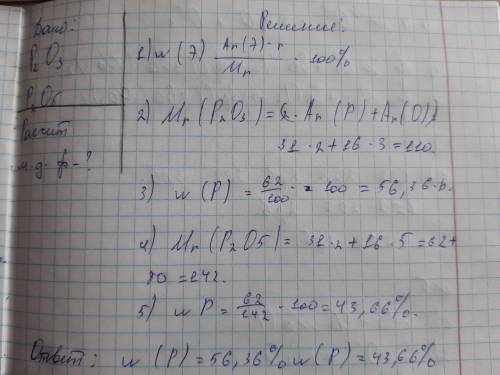 Дано:
P2O3
P2O5
Расчит
м.д. ф - ?
Решение:
1) w (Э) Ar(Э)·n / Mr · 100%
2) Mr (P2O3) = 2 · Ar (P) + Ar(O) =
31 · 2 + 16 · 3 = 110.
3) w (P) = 62/100 · = 100 = 56,36
4) Mr (P2O5) = 31·2 + 16·5 = 62+
80 = 142.
5) w P = 62/142 · 100 = 43,66%.
Ответ: w (P) = 56,36% w (P) = 43,66%